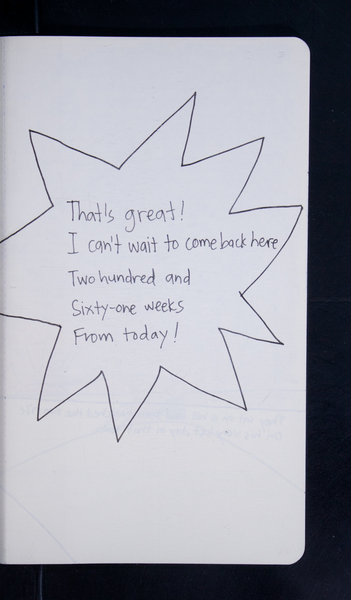 That's great!
I can't wait to come back here
Two hundred and
Sixty-one weeks
From today!